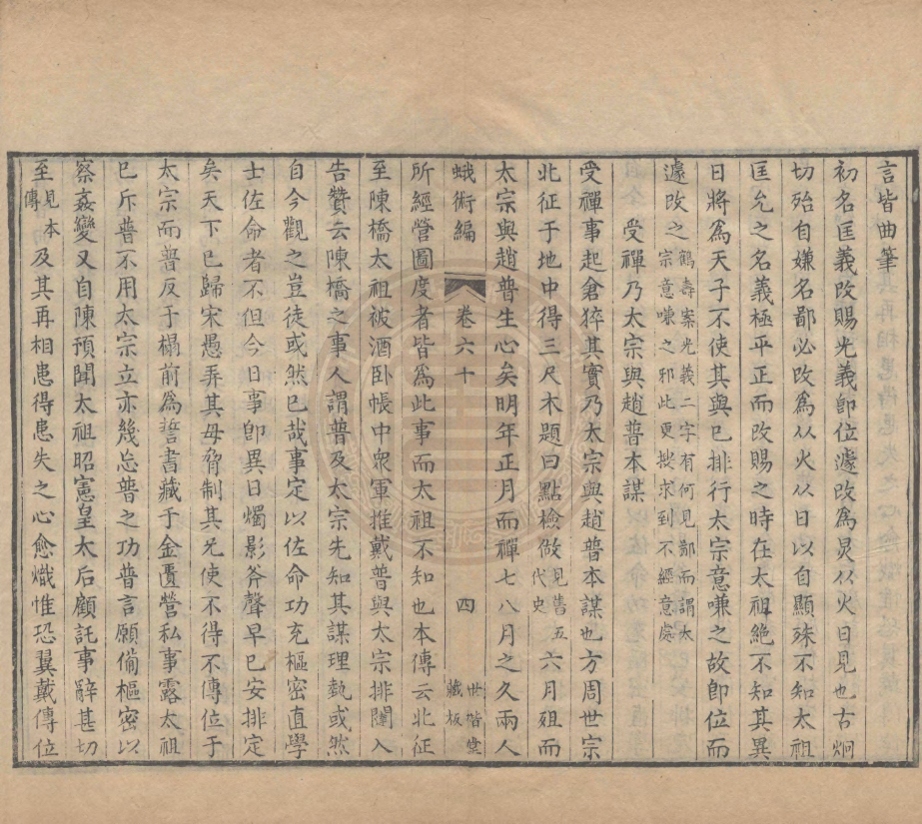 言皆曲筆
初名匡義改賜光義即位遽改為炅从火日見也古烱
切殆自嫌名鄙必改為从火从日以自顯殊不知太祖
匡允之名義極平正而改賜之時在太祖絶不知其異
日將為天子不使其與已排行太宗意嗛之故即位而
遽改之鶴壽案光義二字有何見鄙而謂太
宗意嗛之邪此更搜求到不經意處
受禪乃太宗與趙普本謀
受禪事起倉猝其實乃太宗與趙普本謀也方周世宗
北征于地中得三尺木題曰點檢做見舊五
代史六月殂而
太宗與趙普生心矣明年正月而禪七八月之久兩人
蛾術編 卷六十 四 世楷堂
藏板
所經營圖度者皆為此事而太祖不知也本傳云北征
至陳橋太祖被酒臥帳中衆軍推戴普與太宗排闥入
告贊云陳橋之事人謂普及太宗先知其謀理埶或然
自今觀之豈徒或然已哉事定以佐命功充樞密直學
士佐命者不但今日事即異日燭影斧聲早已安排定
矣天下已歸宋愚弄其母脅制其兄使不得不傳位于
太宗而普反于榻前為誓書藏于金匱營私事露太祖
已斥普不用太宗立亦幾忘普之功普言願備樞密以
察姦變又自陳預聞太祖昭憲皇太后顧託事辭甚切
至見本
傳及其再相患得患失之心愈熾惟恐翼戴傳位